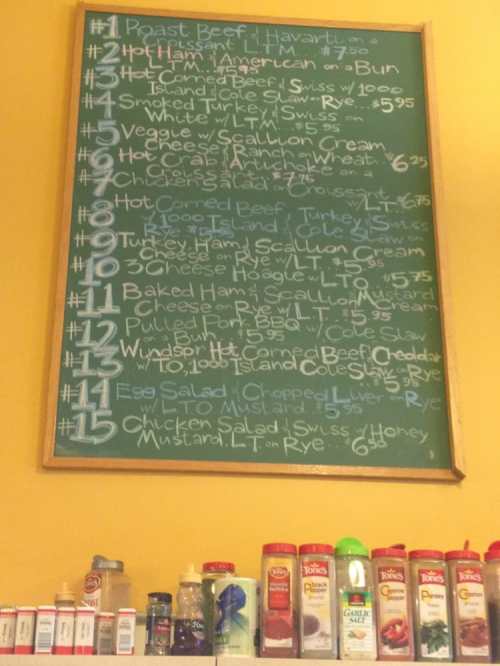 #1 Roast Beef & Havarti on a
Croissant L.T.M... $7.50
#2 Hot Ham & American on a Bun
L.T.M... $5.95
#3 Hot Corned Beef & Swiss w/ 1000
Island & Cole Slaw on Rye... $5.95
#4 Smoked Turkey & Swiss on
White w/ L.T.M... $5.95
#5 Veggie w/ Scallion Cream
Cheese & Ranch on Wheat... $6.25
#6 Hot Crab & Artichoke on a
Croissant... $7.75
#7 Chicken Salad on Croissant
w/ L.T. $6.75
#8 Hot Corned Beef & Turkey & Swiss
w/ 1000 Island & Cole Slaw on
Rye
#9 Turkey Ham & Scallion Cream
Cheese on Rye w/ LT $5.95
#10 3 Cheese Hoagie w/ LTO $5.75
#11 Baked Ham & Scallion Cream
Cheese on Rye w/ L.T. Mustard $5.95
#12 Pulled Pork BBQ w/ Cole Slaw
on a Bun $5.95
#13 Windsor Hot Corned Beef & Cheddar
w/ T.O, 1000 Island Cole Slaw on Rye
$5.95
#14 Egg Salad & Chopped Liver on Rye
w/ LTO Mustard... $5.95
#15 Chicken Salad & Swiss w/ Honey
Mustard.. L.T. on Rye... $6.50
Tone's
Tone's
black Pepper
GARLIC SALT
Tone's
Cayenne Pepper
Tone's
Parsley
Tone's